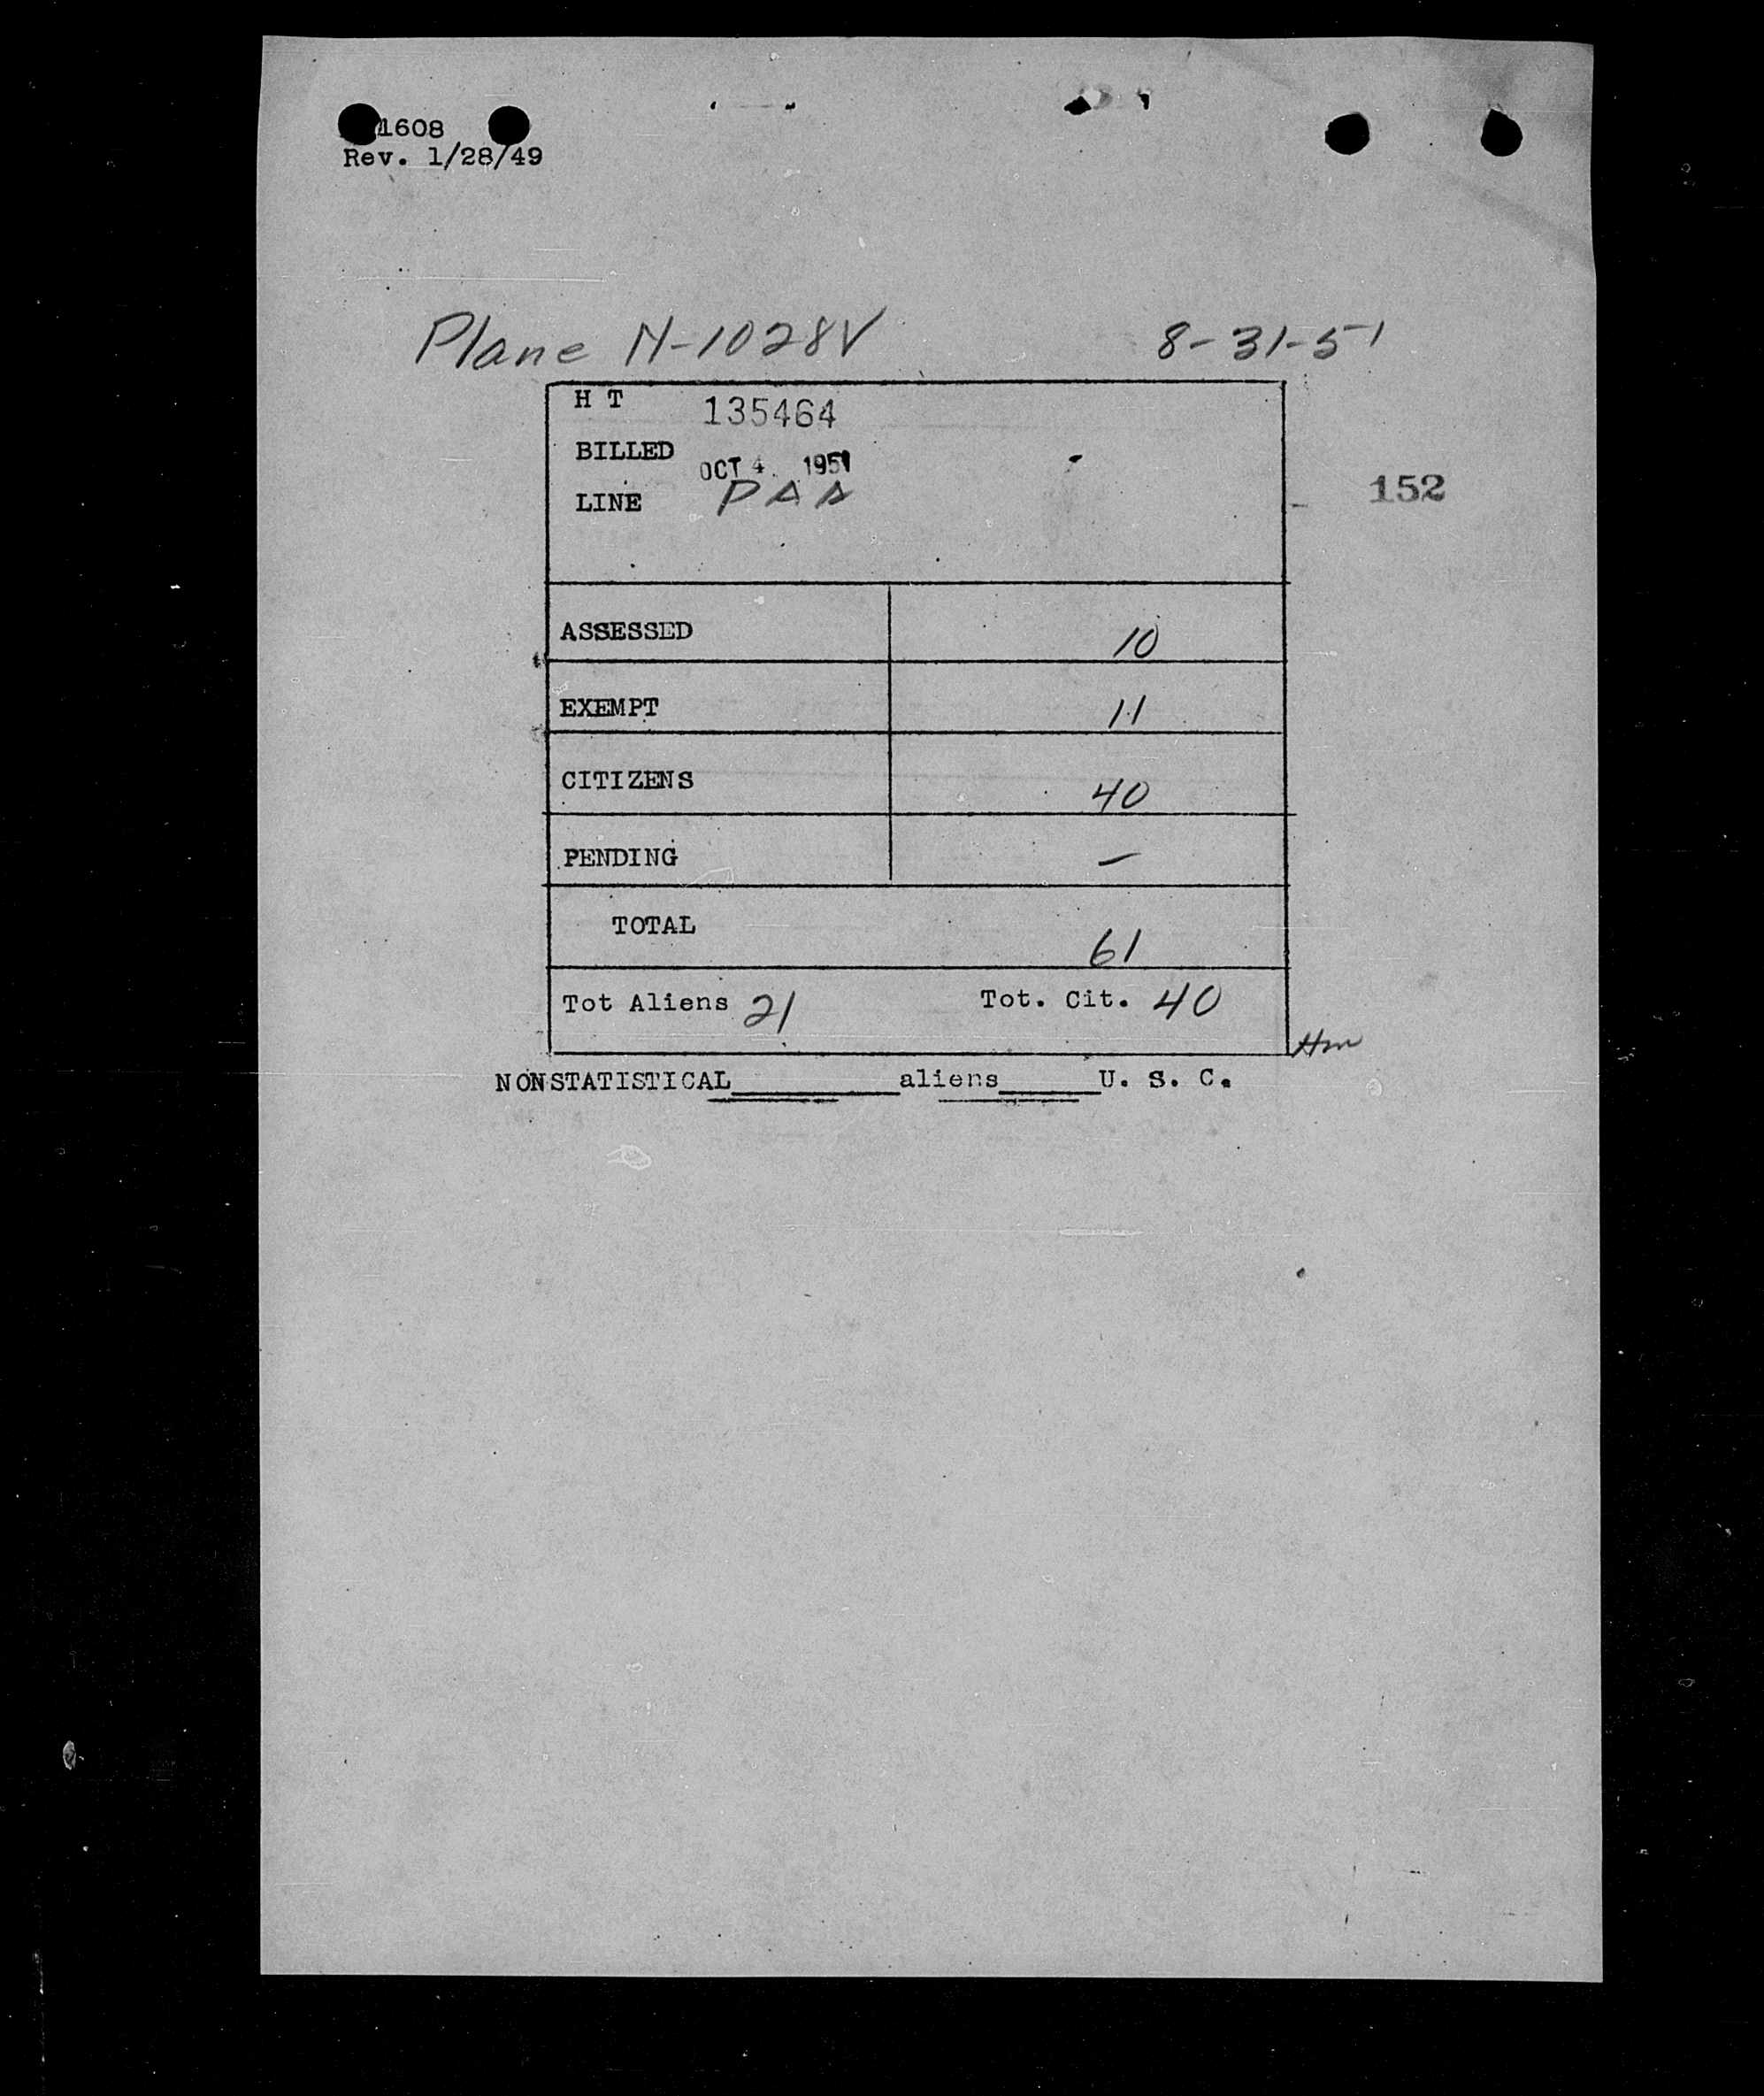 1608
Rev. 1/28/49
Plane N-1028V 8-31-51
H T 135464
BILLED OCT 4 1951
LINE PAA
152
ASSESSED 10
EXEMPT 11
CITIZENS 40
PENDING —
TOTAL 61
Tot Aliens 21 Tot. Cit. 40
NONSTATISTICAL__________aliens______U. S. C.